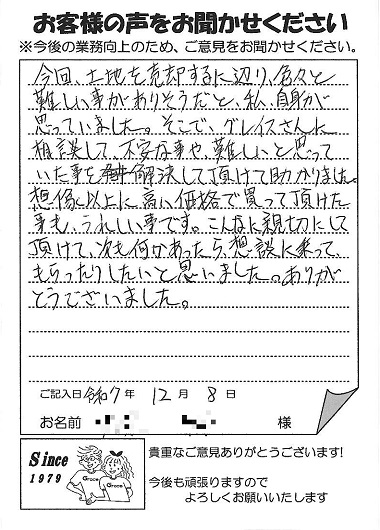 お客様の声をお聞かせください
※今後の業務向上のため、ご意見をお聞かせください。
今回、土地を売却するに辺り、色々と
難しい事がありそうだと、私、自身が
思っていました。そこで、グレイスさんに
相談して、不安な事や、難しいと思って
いた事を解決して頂けて助かりました。
想像以上に高い価格で買って頂けた
事も、うれしい事です。こんなに親切にして
頂けて、次も何かあったら、想談に乗って
もらったりしたいと思いました。ありが
とうございました。
ご記入日 令和7年 12月 8日
お名前 様
Since
1979
Grace
Grace
貴重なご意見ありがとうございます!
今後も頑張りますので
よろしくお願いいたします